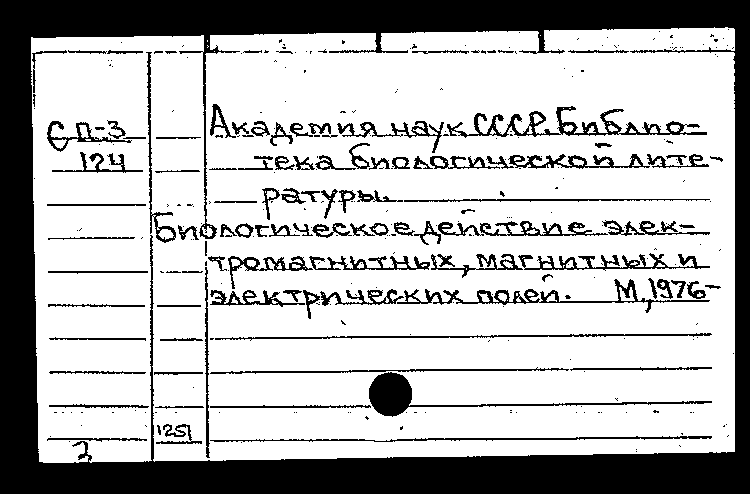 С П-3
124
Академия наук СССР. Библио-
тека биологической лите-
ратуры.
Биологическое действие элек-
тромагнитных, магнитных и
электрических полей. М., 1976-
1251
3